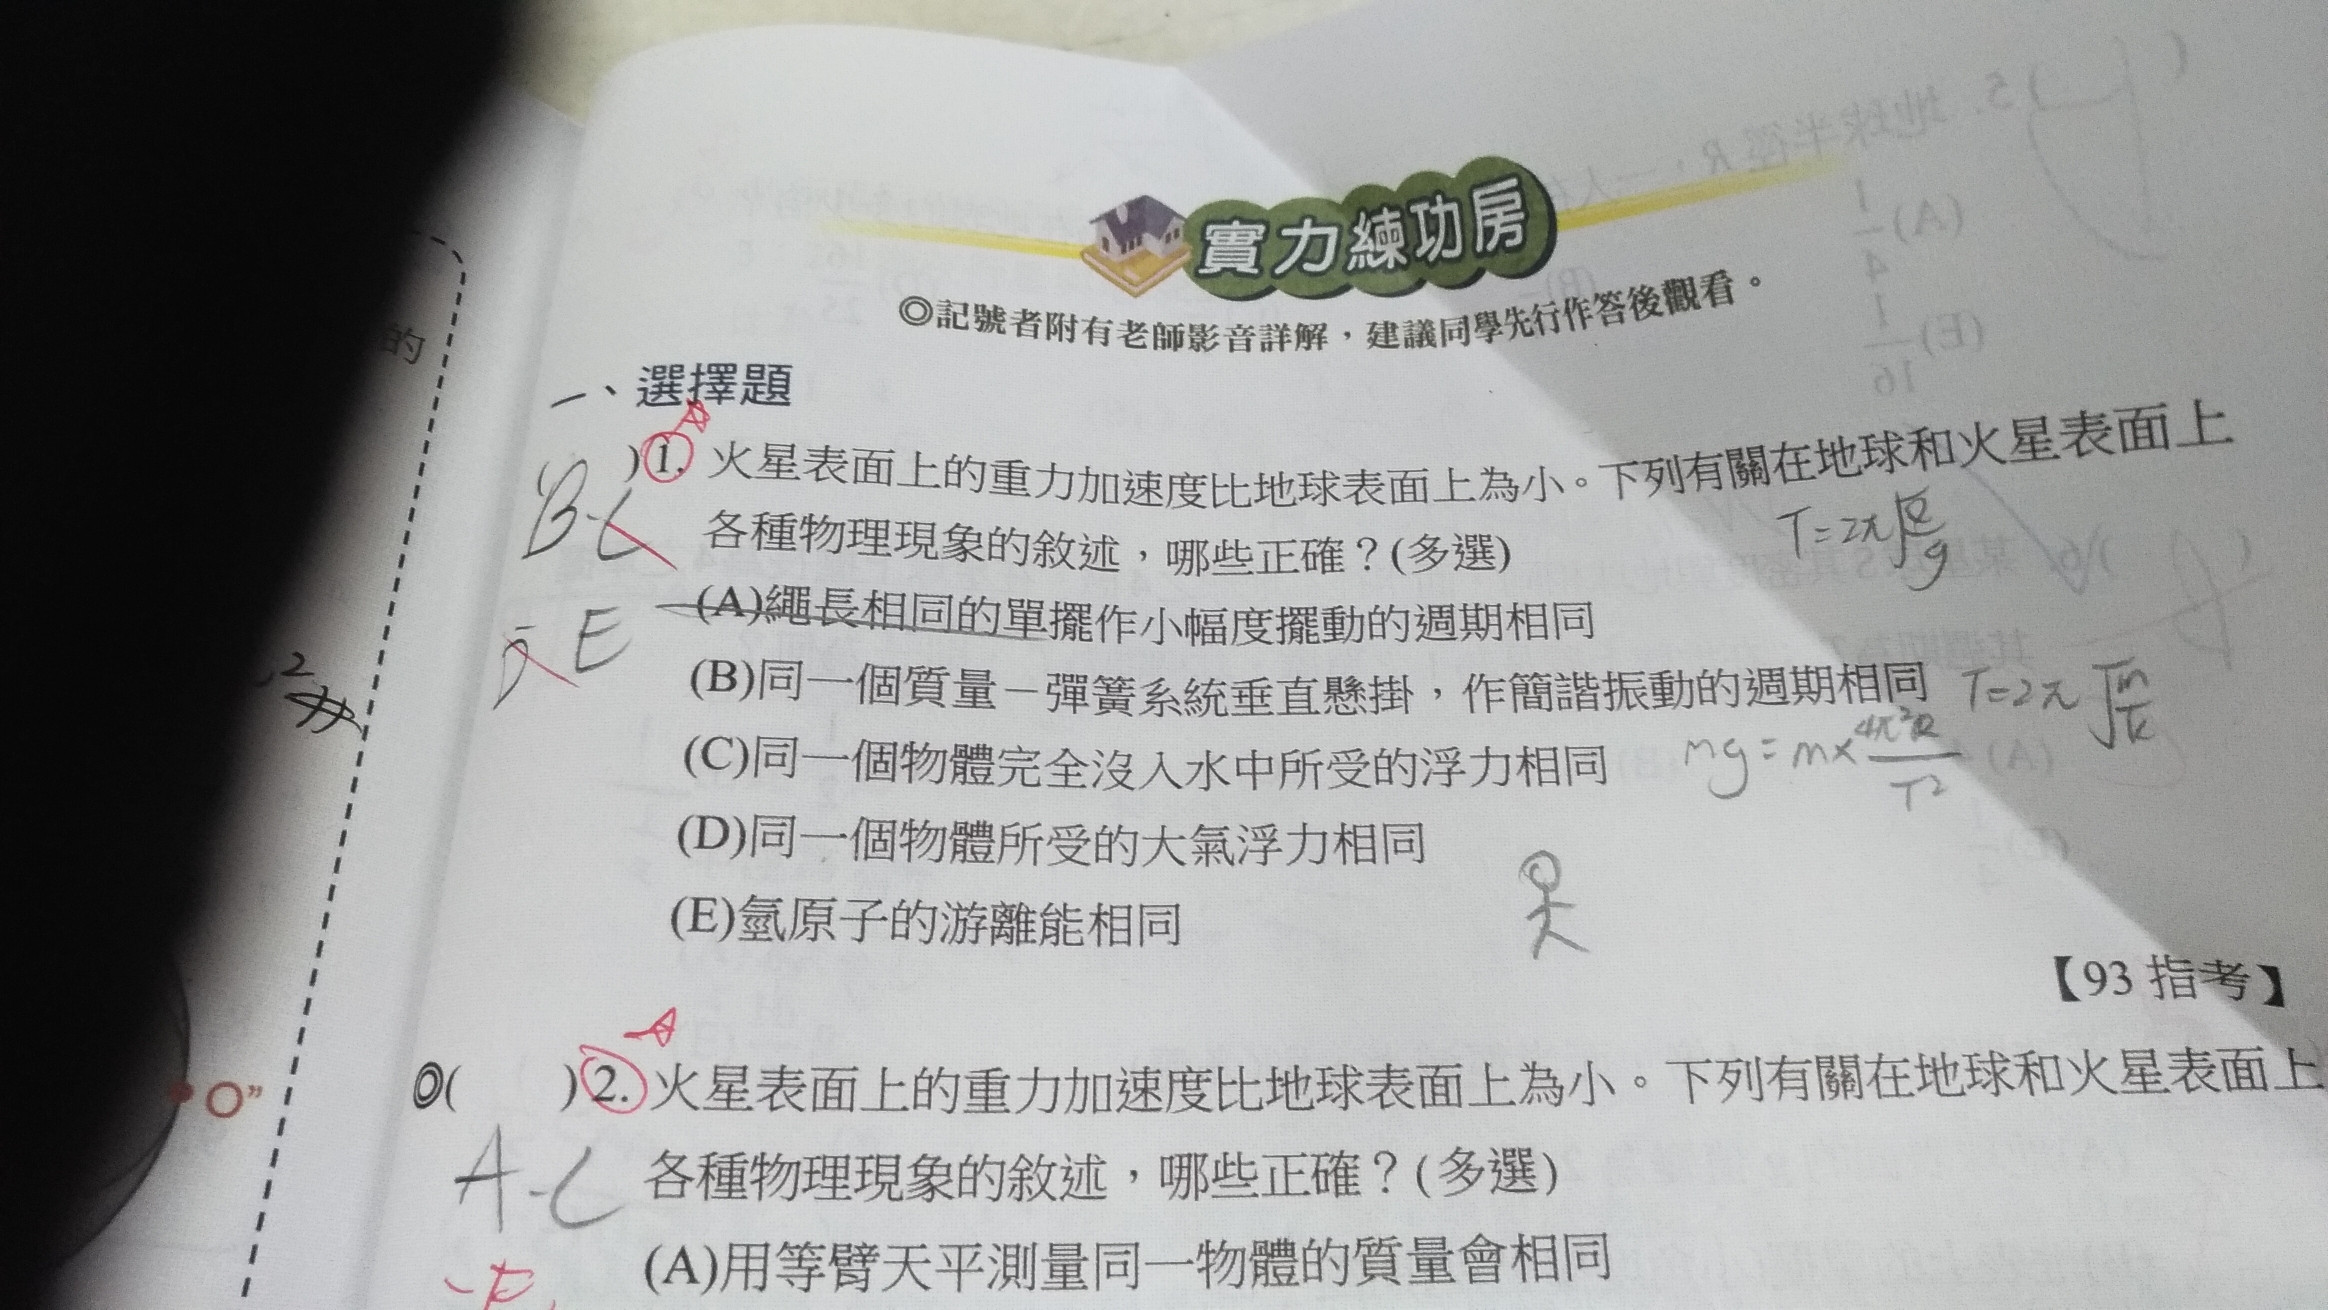 的
實力練功房
◎記號者附有老師影音詳解，建議同學先行作答後觀看。
一、選擇題
)1. 火星表面上的重力加速度比地球表面上為小。下列有關在地球和火星表面上
各種物理現象的敘述，哪些正確？(多選)
(A)繩長相同的單擺作小幅度擺動的週期相同
(B)同一個質量－彈簧系統垂直懸掛，作簡諧振動的週期相同
(C)同一個物體完全沒入水中所受的浮力相同
(D)同一個物體所受的大氣浮力相同
(E)氫原子的游離能相同
B C
E
T=2π√
T=2π√m/k
mg=m×4π²R/T²
【93 指考】
◎( )2. 火星表面上的重力加速度比地球表面上為小。下列有關在地球和火星表面上
各種物理現象的敘述，哪些正確？(多選)
A C
(A)用等臂天平測量同一物體的質量會相同
O”